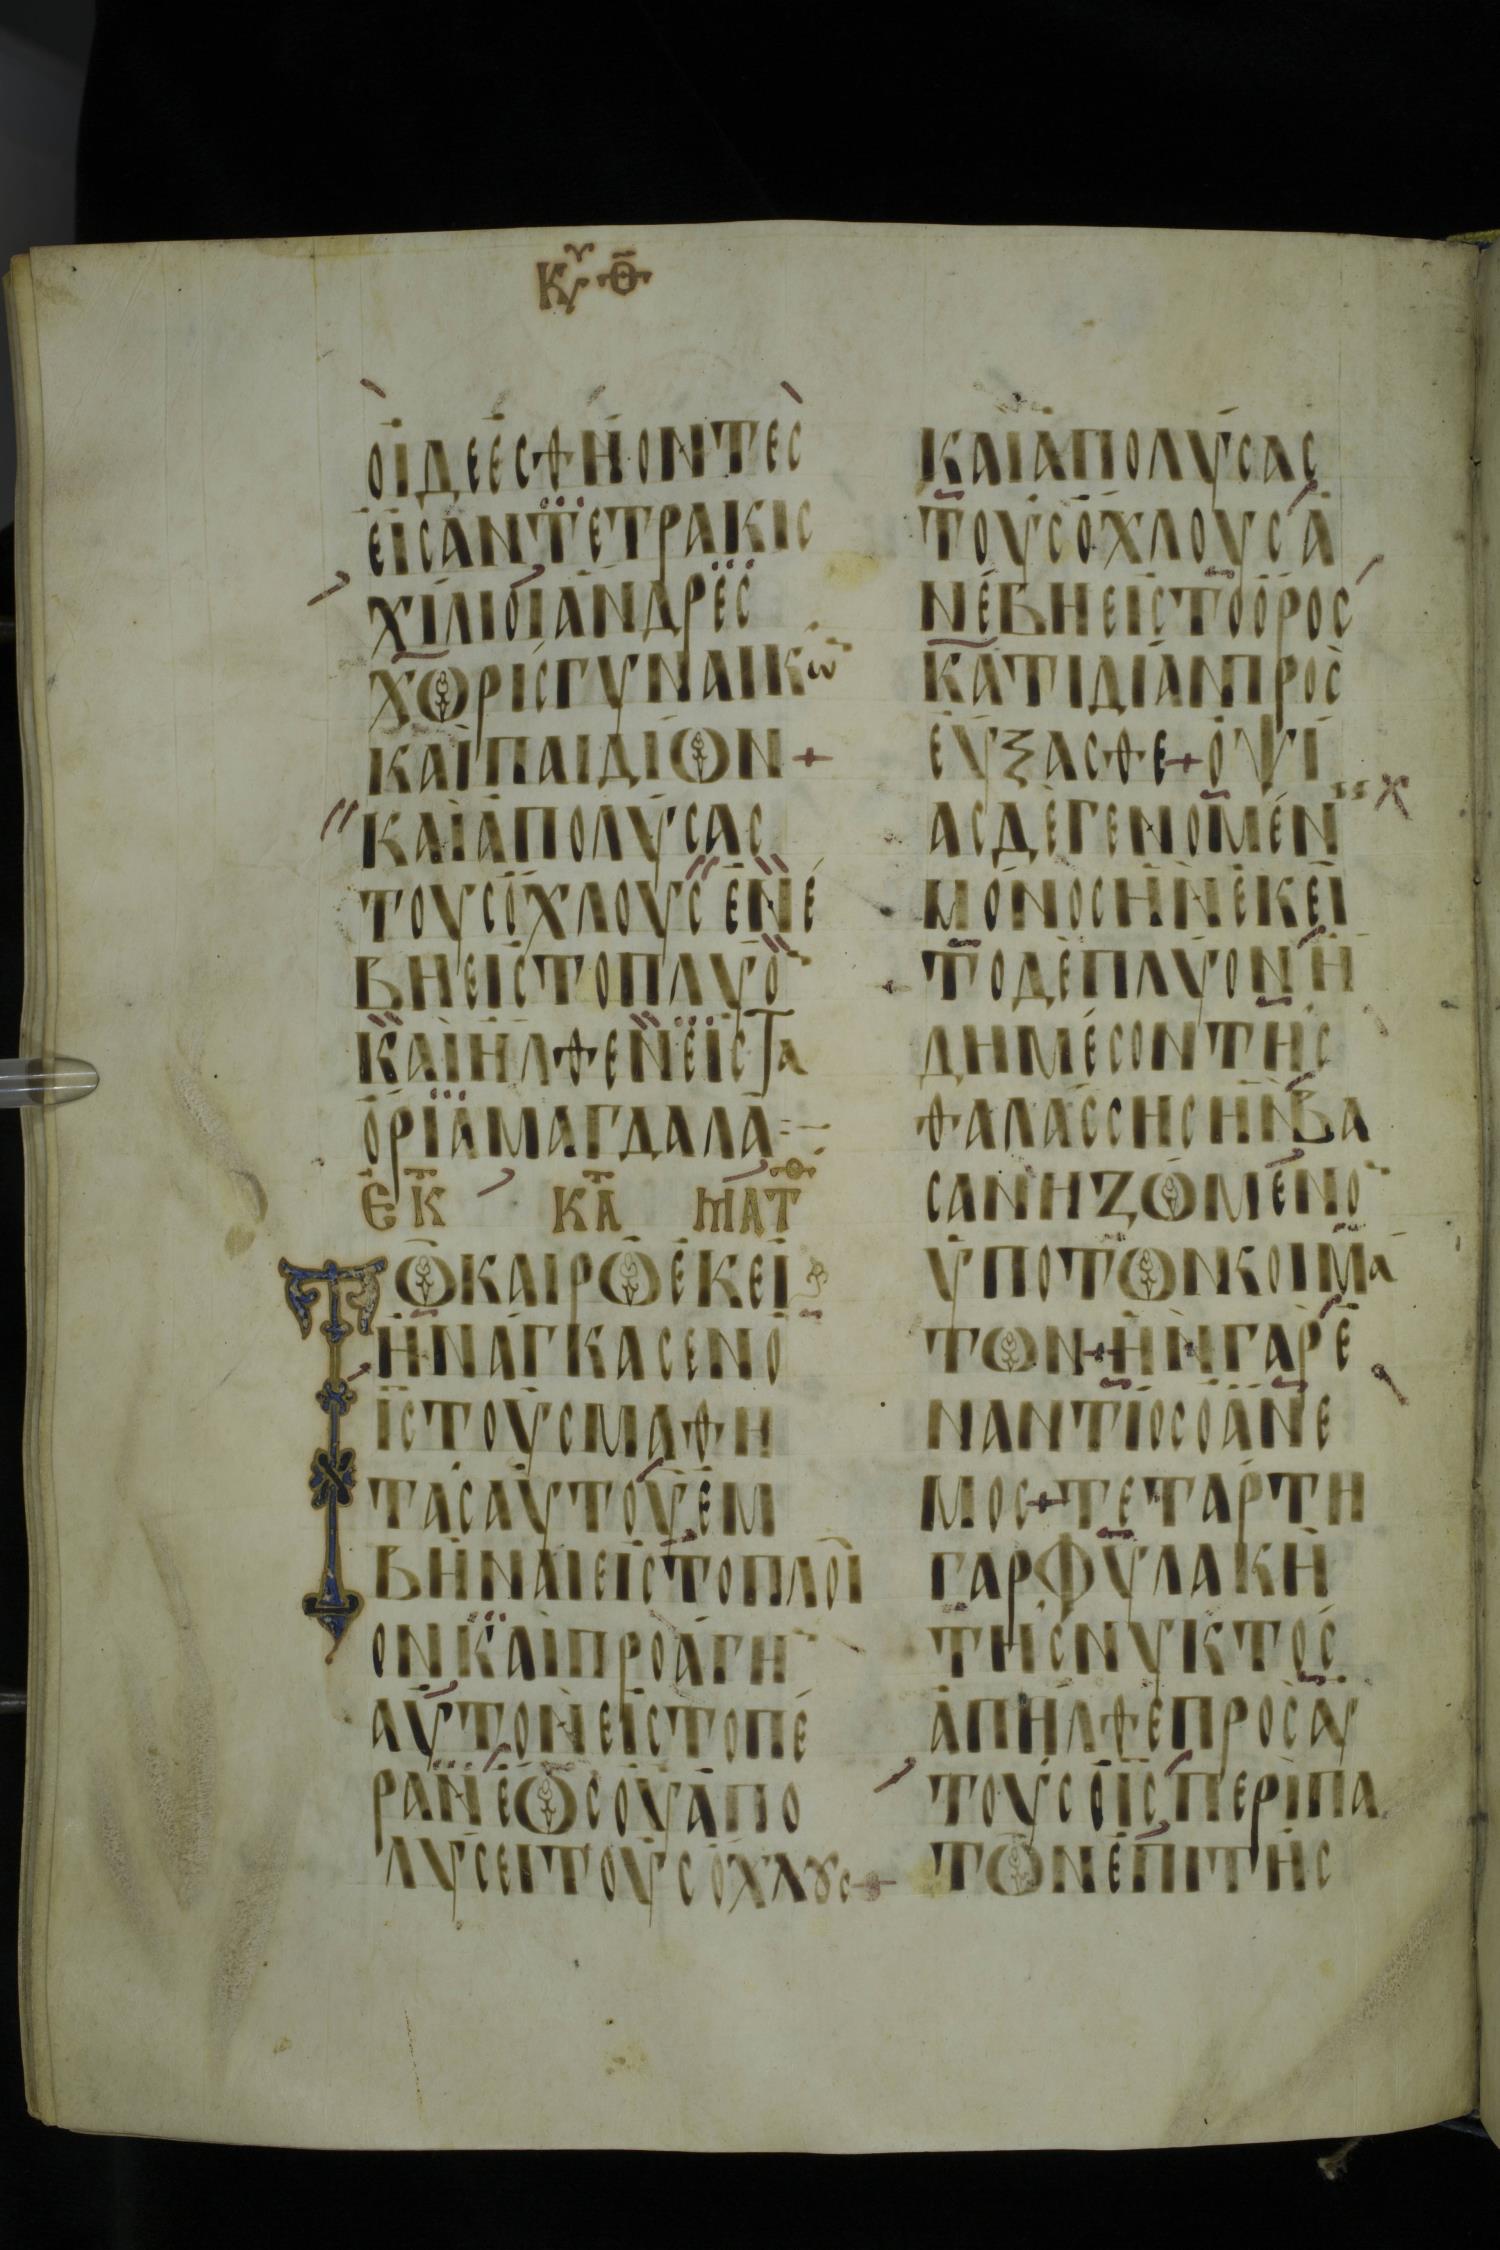 Κυ Θ
ΟΙΔΕΕΣΘΗΟΝΤΕΣ
ΕΙΣΑΝΤΕΤΡΑΚΙΣ
ΧΙΛΙΟΙΑΝΔΡΕΣ
ΧΩΡΙΣΓΥΝΑΙΚω̅
ΚΑΙΠΑΙΔΙΩΝ+
ΚΑΙΑΠΟΛΥΣΑΣ
ΤΟΥΣΟΧΛΟΥΣΕΝΕ
ΒΗΕΙΣΤΟΠΛΥΟ̅
ΚΑΙΗΛΘΕΝΕΙΣΤΑ
ΟΡΙΑΜΑΓΔΑΛΑ
ΕΚ ΚΑΤ ΜΑΤΘ
ΤΩΚΑΙΡΩΕΚΕΙ
ΗΝΑΓΚΑΣΕΝΟ
ΙΣΤΟΥΣΜΑΘΗ
ΤΑΣΑΥΤΟΥΕΜ
ΒΗΝΑΙΕΙΣΤΟΠΛΟΙ
ΟΝΚΑΙΠΡΟΑΓΗ̅
ΑΥΤΟΝΕΙΣΤΟΠΕ
ΡΑΝΕΩΣΟΥΑΠΟ
ΛΥΣΕΙΤΟΥΣΟΧΛȣΣ+
ΚΑΙΑΠΟΛΥΣΑΣ
ΤΟΥΣΟΧΛΟΥΣΑ
ΝΕΒΗΕΙΣΤΟΟΡΟΣ
ΚΑΤΙΔΙΑΝΠΡΟΣ
ΕΥΞΑΣΘΕ+ΟΨΙ
ΑΣΔΕΓΕΝΟΜΕΝ
ΜΟΝΟΣΗΝΕΚΕΙ
ΤΟΔΕΠΛΥΟΝΗ
ΔΗΜΕΣΟΝΤΗΣ
ΘΑΛΑΣΣΗΣΗΝΒΑ
ΣΑΝΗΖΩΜΕΝΟ̅
ΥΠΟΤΩΝΚΟΙΜΑ
ΤΩΝ+ΗΝΓΑΡΕ
ΝΑΝΤΙΟΣΟΑΝΕ
ΜΟΣ+ΤΕΤΑΡΤΗ
ΓΑΡΦΥΛΑΚΗ
ΤΗΣΝΥΚΤΟΣ
ΑΠΗΛΘΕΠΡΟΣΑΥ
ΤΟΥΣΟΙΣΠΕΡΙΠΑ
ΤΩΝΕΠΙΤΗΣ